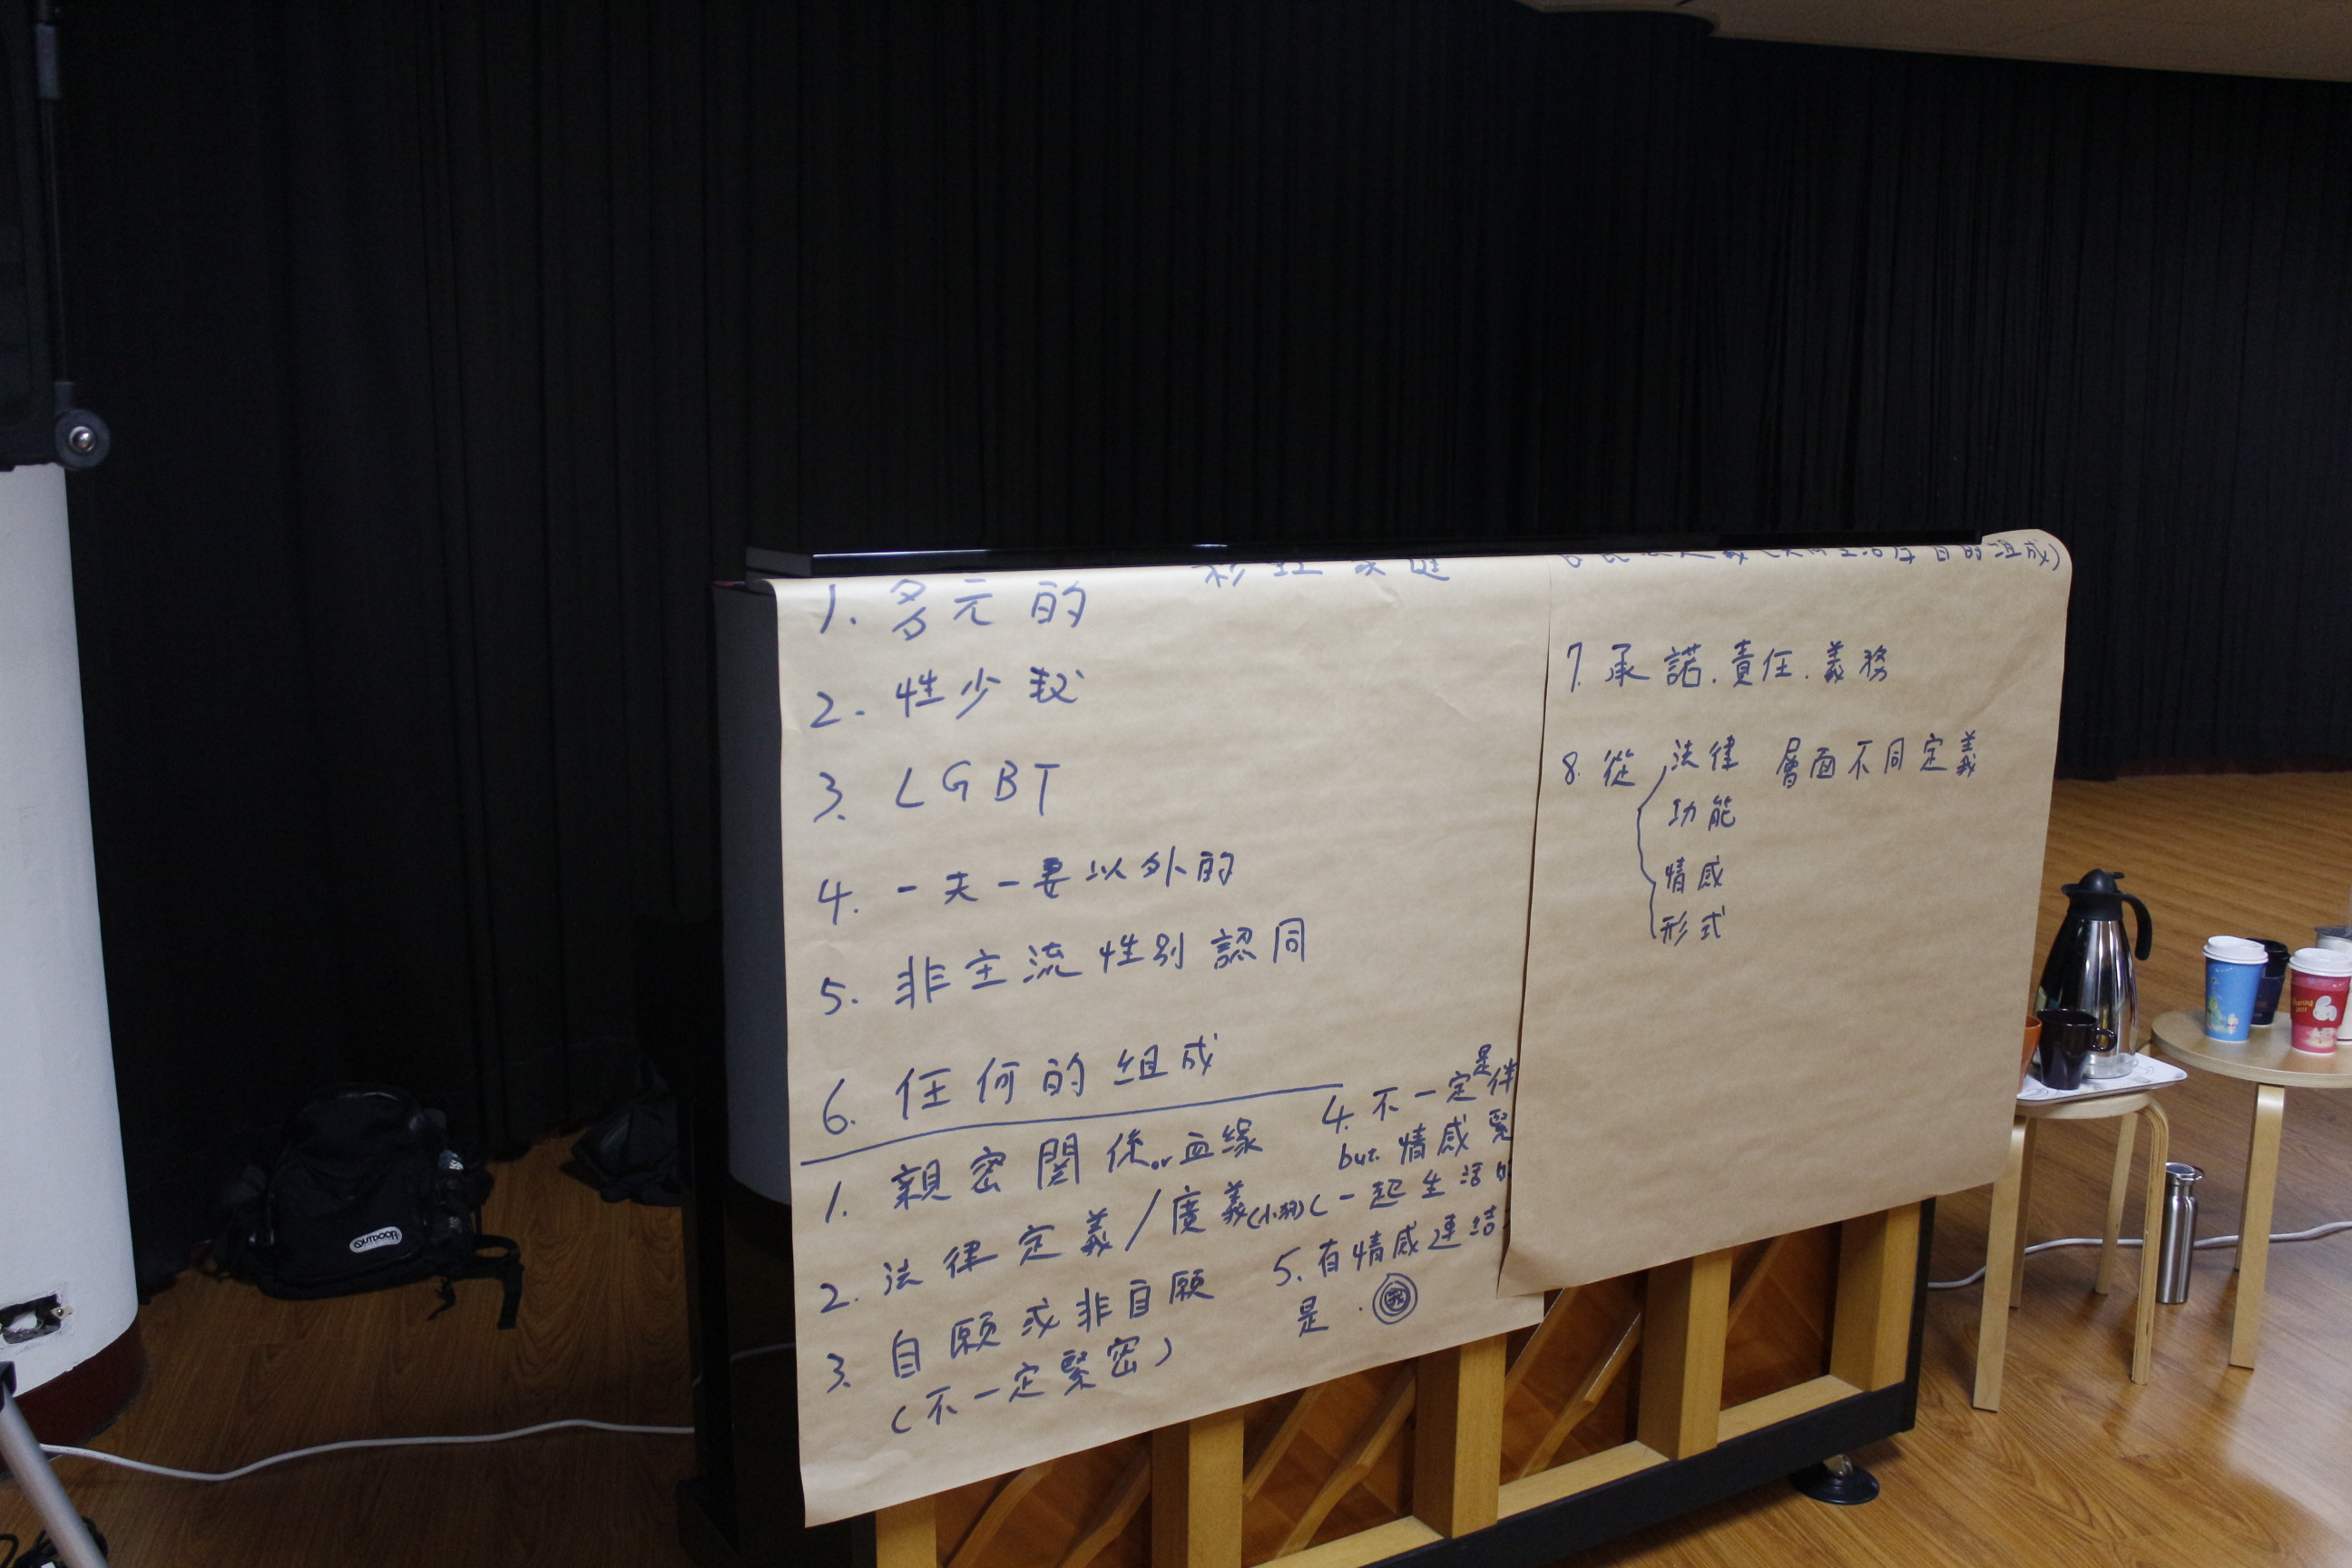 彩虹家庭
1. 多元的
2. 性少数
3. LGBT
4. 一夫一妻以外的
5. 非主流性別認同
6. 任何的組成
1. 親密関係or血緣
2. 法律定義/廣義
3. 自願或非自願
(不一定緊密)
4. 不一定是伴
but 情感緊
(一起生活
5. 有情感連結
是.我
的組成)
7. 承諾.責任.義務
8. 從 法律 層面不同定義
功能
情感
形式
OUTDOOR